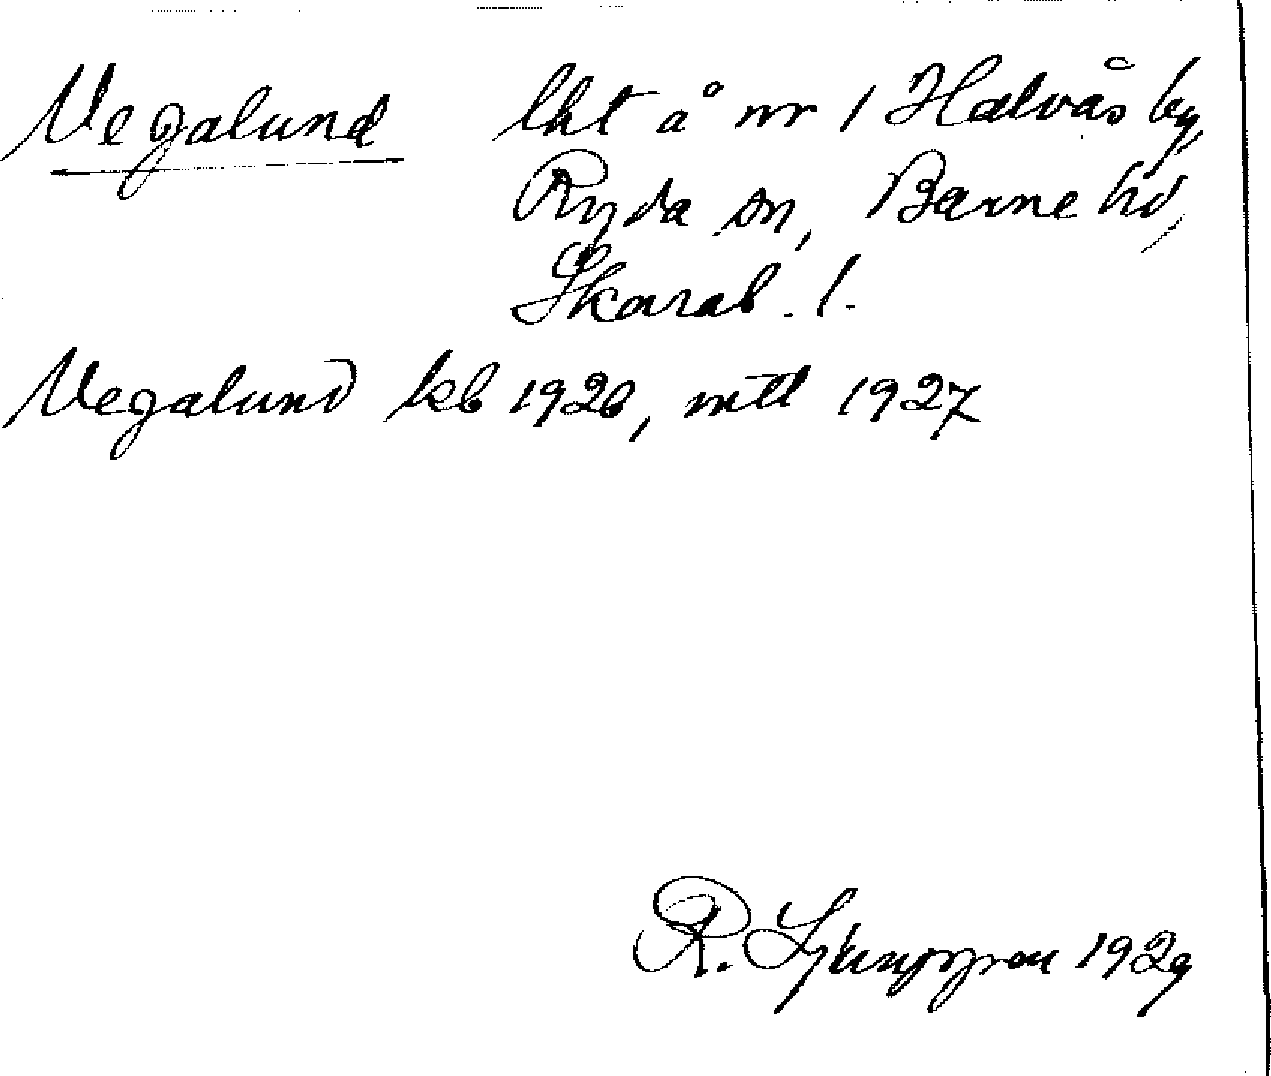 Vegalund lht å nr 1 Halvås by,
Ryda sn, Barne hd,
Skarab. l.
Vegalund kb 1926, mtl 1927
R. Ljunggren 1929